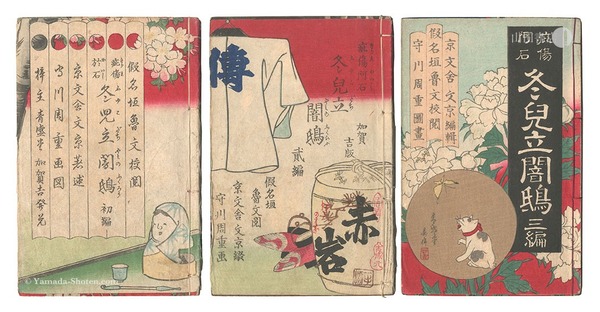 假名垣魯文校閲
冬兒立闇鴟 初編
京文舎文京著述
守川周重画図
梓主 青盛堂 加賀吉発兌
傳
冬兒立闇鴟 貳編
加賀吉版
假名垣魯文閲
京文舎文京綴
守川周重画
赤岩
京文舎文京編輯
假名垣魯文校閲
守川周重圖畫
冬兒立闇鴟 三編
© Yamada-Shoten.com